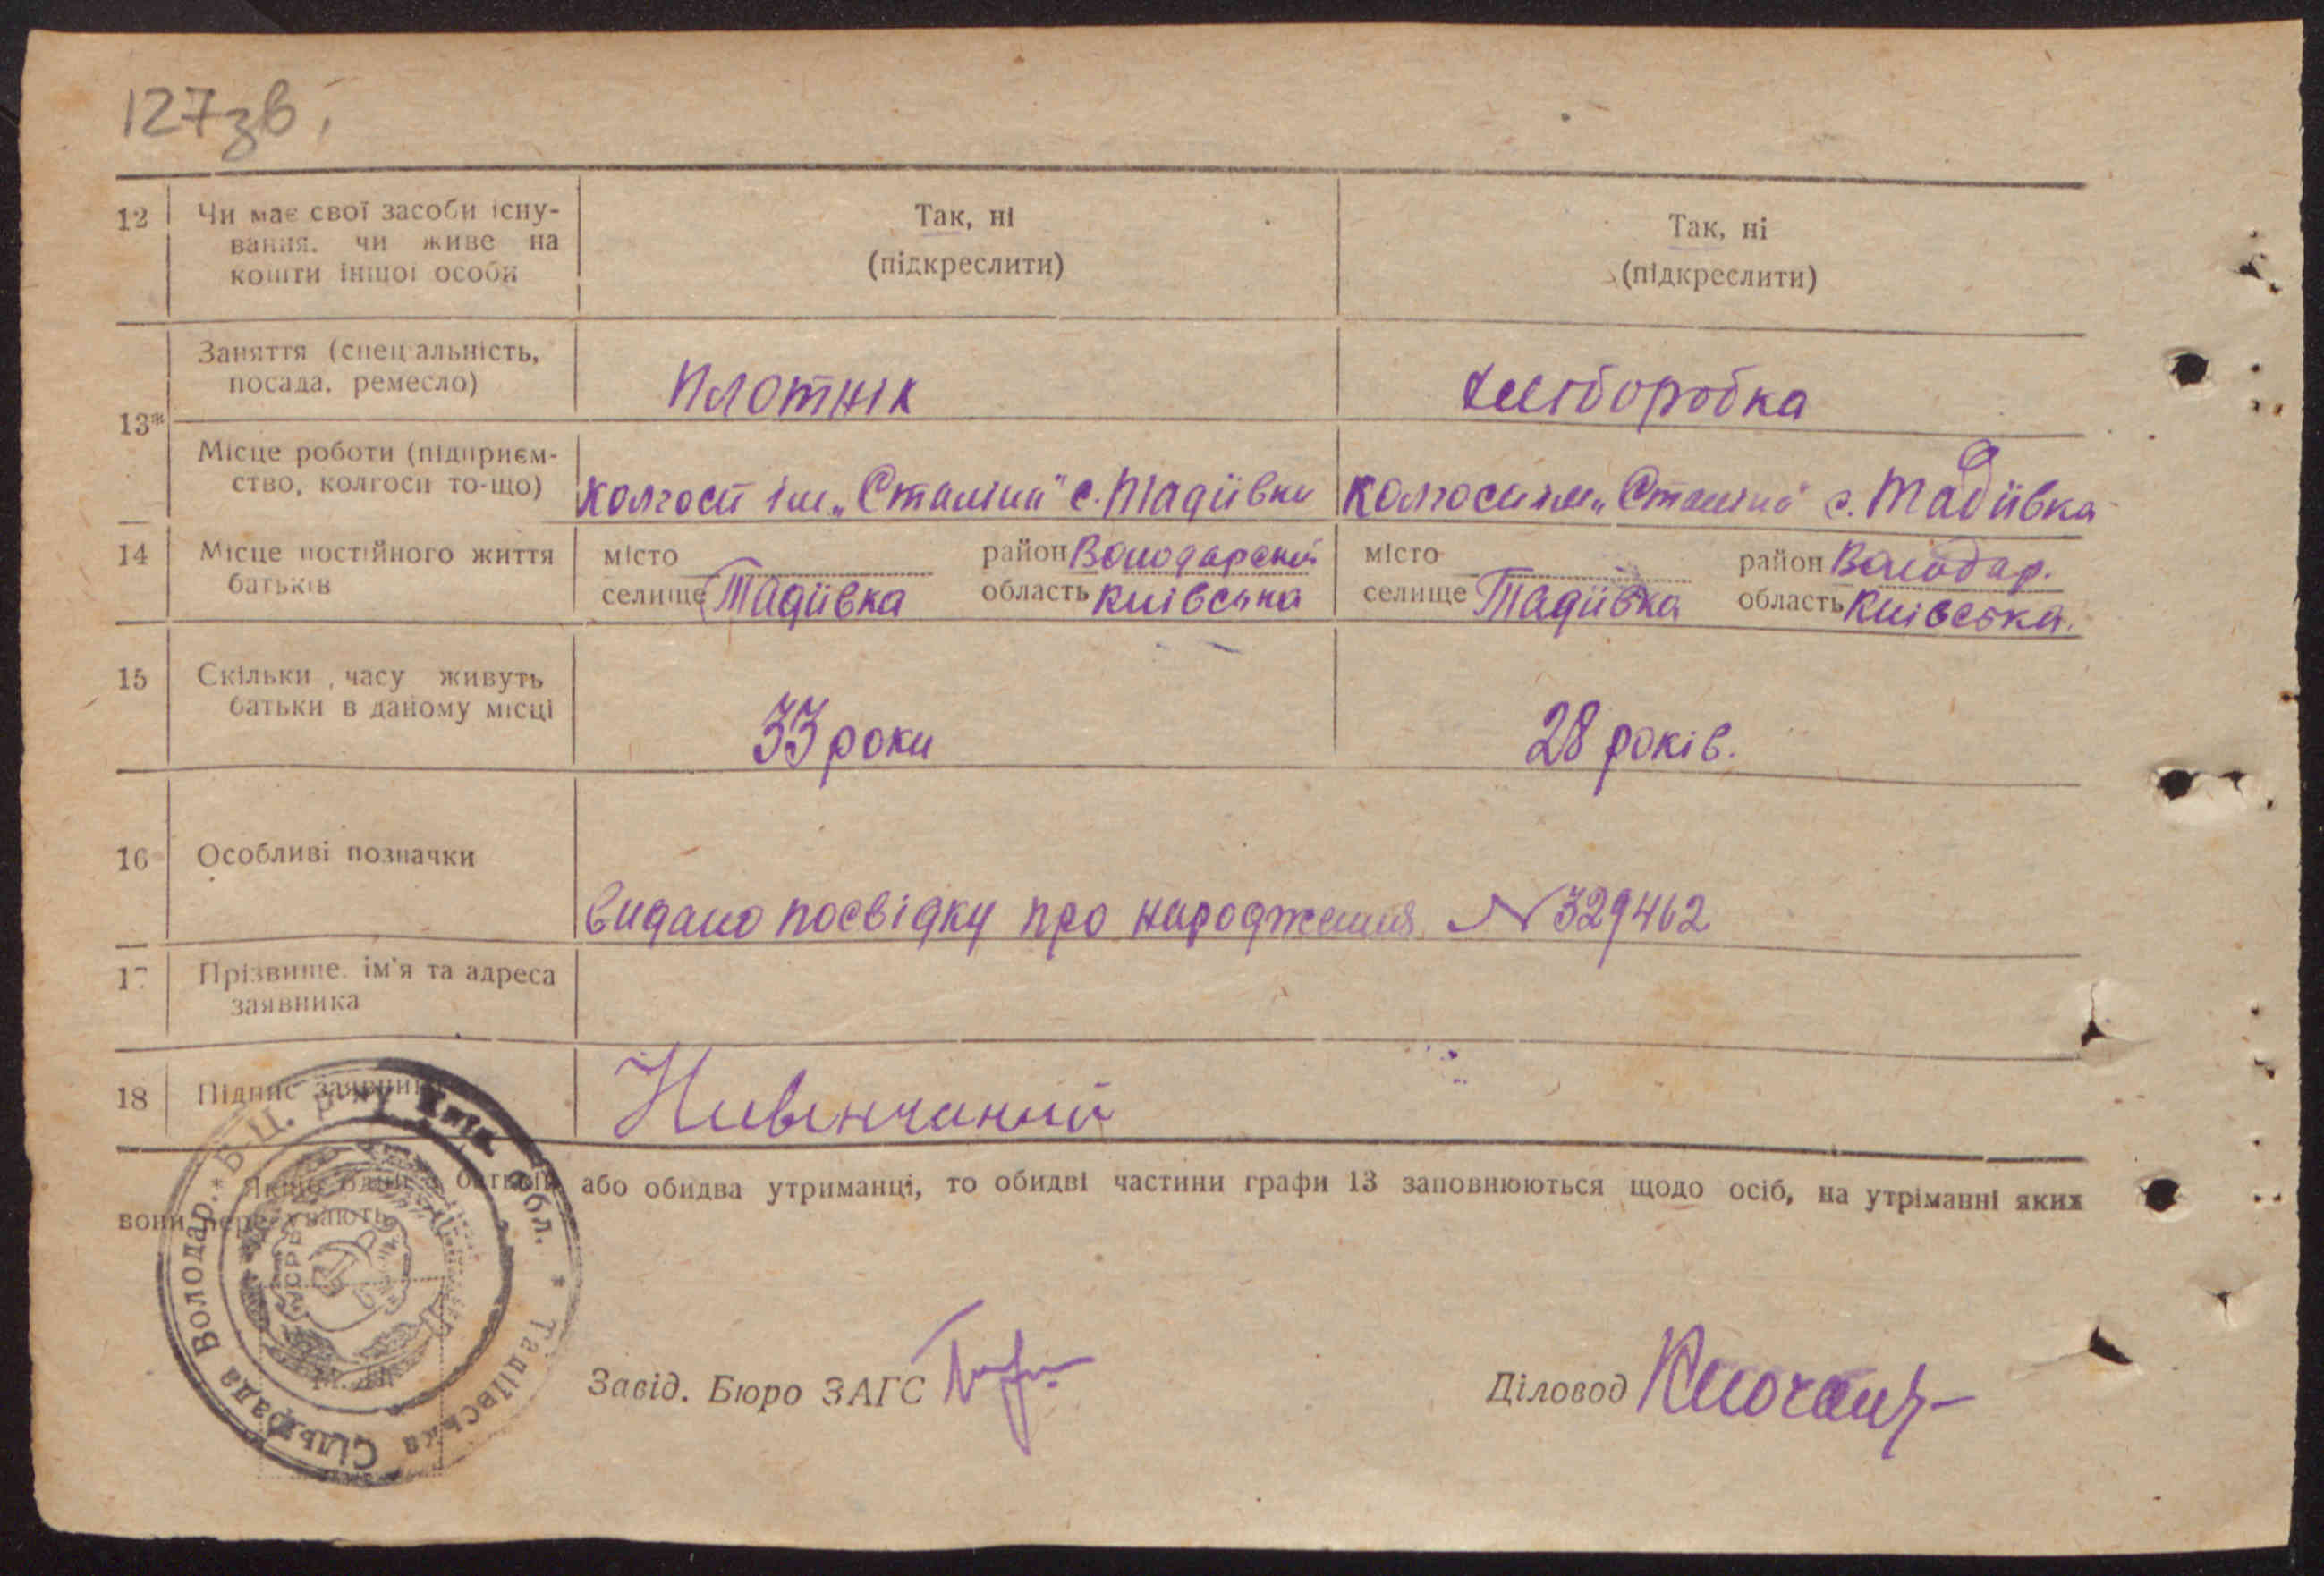 127зв.
12 Чи має свої засоби існу- Так, ні Так, ні
вання, чи живе на (підкреслити) (підкреслити)
кошти іншої особи
Заняття (спеціальність, Плотнік хліборобка
посада, ремесло)
13*
Місце роботи (підприєм-
ство, колгосп то-що) колгосп ім „Сталіна" с. Тадіївки колгосп ім „Сталіна" с. Тадіївка
14 Місце постійного життя місто район Володарский місто район Володар.
батьків селище Тадіївка область Київська селище Тадіївка область Київська.
15 Скільки часу живуть
батьки в даному місці 33 роки 28 років.
16 Особливі позначки
видано посвідку про народження N 329462
17 Прізвище, ім'я та адреса
заявника
18 Підпис заявника
* Якщо один з батьків або обидва утриманці, то обидві частини графи 13 заповнюються щодо осіб, на утріманні яких
вони перебувають
Тадіївська Сільрада Володар. Б.Ц. р-ну Київ. обл.
УСРР
Завід. Бюро ЗАГС
Діловод